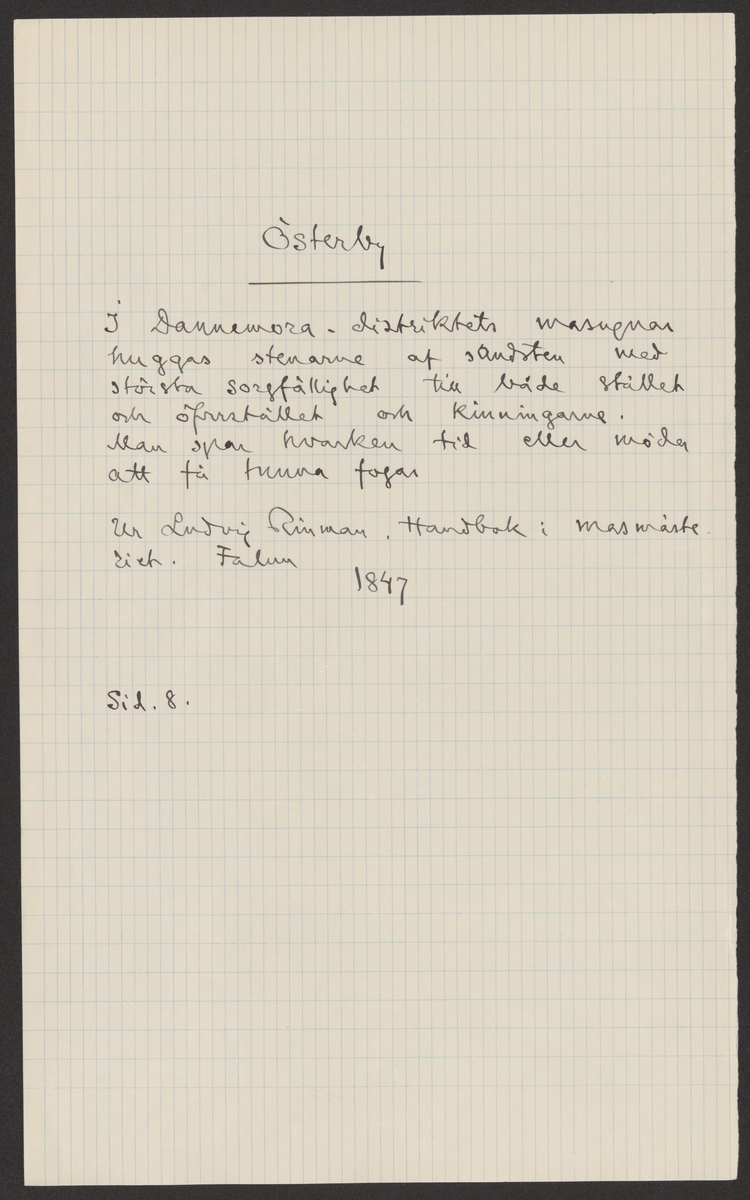 Österby
I Dannemora-distriktets masugnar
huggas stenarne af sandsten med
största sorgfällighet till både stället
och öfverstället och kinningarne.
Man spar hvarken tid eller möda
att få tunna fogar
Ur Ludvig Rinman, Handbok i masmäste-
riet. Falun
1847
Sid. 8.